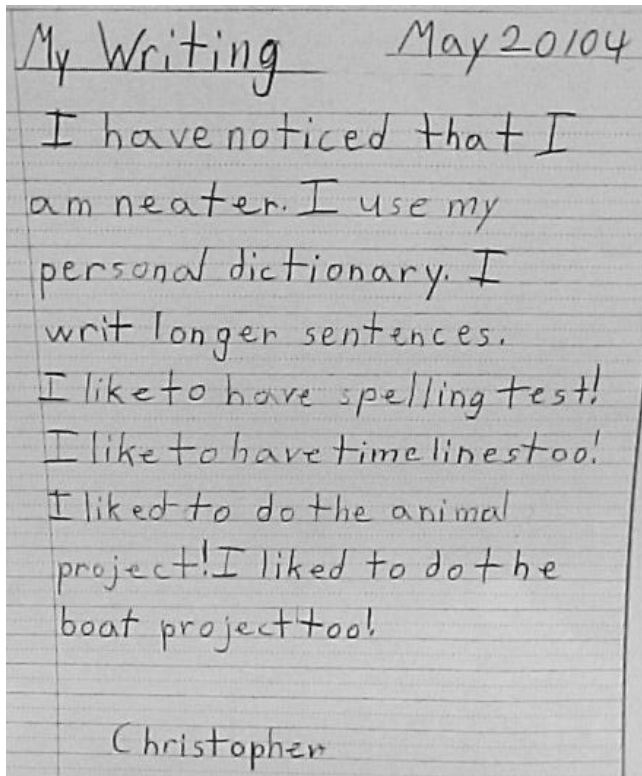 My Writing May 20104
I have noticed that I
am neater. I use my
personal dictionary. I
writ longer sentences.
I like to have spelling test!
I like to have time lines too!
I liked to do the animal
project! I liked to do the
boat project too!
Christopher